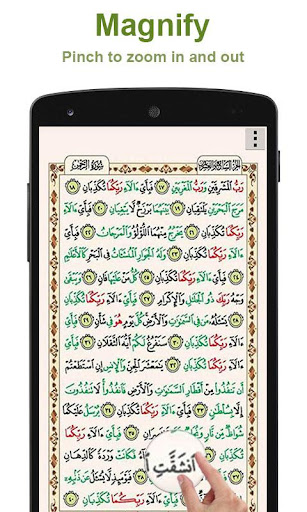 Magnify
Pinch to zoom in and out
سُورَةُ الرَّحْمٰن الجزء السابع والعشرون
رَبُّ الْمَشْرِقَيْنِ وَرَبُّ الْمَغْرِبَيْنِ ١٧ فَبِأَيِّ ءَالَآءِ رَبِّكُمَا تُكَذِّبَانِ ١٨
مَرَجَ الْبَحْرَيْنِ يَلْتَقِيَانِ ١٩ بَيْنَهُمَا بَرْزَخٌ لَّا يَبْغِيَانِ ٢٠ فَبِأَيِّ ءَالَآءِ
رَبِّكُمَا تُكَذِّبَانِ ٢١ يَخْرُجُ مِنْهُمَا اللُّؤْلُؤُ وَالْمَرْجَاتُ ٢٢ فَبِأَيِّ
ءَالَآءِ رَبِّكُمَا تُكَذِّبَانِ ٢٣ وَلَهُ الْجَوَارِ الْمُنشَـَٔاتُ فِي الْبَحْرِ كَالْأَعْلَٰمِ
٢٤ فَبِأَيِّ ءَالَآءِ رَبِّكُمَا تُكَذِّبَانِ ٢٥ كُلُّ مَنْ عَلَيْهَا فَانٍ ٢٦ وَيَبْقَىٰ
وَجْهُ رَبِّكَ ذُو الْجَلَٰلِ وَالْإِكْرَامِ ٢٧ فَبِأَيِّ ءَالَآءِ رَبِّكُمَا تُكَذِّبَانِ ٢٨
يَسْـَٔلُهُ مَن فِي السَّمَٰوَٰتِ وَالْأَرْضِ كُلَّ يَوْمٍ هُوَ فِي شَأْنٍ ٢٩ فَبِأَيِّ
ءَالَآءِ رَبِّكُمَا تُكَذِّبَانِ ٣٠ سَنَفْرُغُ لَكُمْ أَيُّهَ الثَّقَلَانِ ٣١ فَبِأَيِّ ءَالَآءِ
رَبِّكُمَا تُكَذِّبَانِ ٣٢ يَٰمَعْشَرَ الْجِنِّ وَالْإِنسِ إِنِ اسْتَطَعْتُمْ
أَن تَنفُذُوا مِنْ أَقْطَارِ السَّمَٰوَٰتِ وَالْأَرْضِ فَانفُذُوا لَا تَنفُذُونَ
إِلَّا بِسُلْطَٰنٍ ٣٣ فَبِأَيِّ ءَالَآءِ رَبِّكُمَا تُكَذِّبَانِ ٣٤ يُرْسَلُ عَلَيْكُمَا
شُوَاظٌ مِّن نَّارٍ وَنُحَاسٌ فَلَا
رَبِّكُمَا تُكَذِّبَانِ ٣٦ فَإِذَا انشَقَّتِ وَرْدَةً كَالدِّهَانِ
٣٧ فَبِأَيِّ ءَالَآءِ رَبِّكُمَا تُكَذِّبَانِ ٣٨ فَيَوْمَئِذٍ لَّا يُسْـَٔلُ عَن ذَنبِهِ